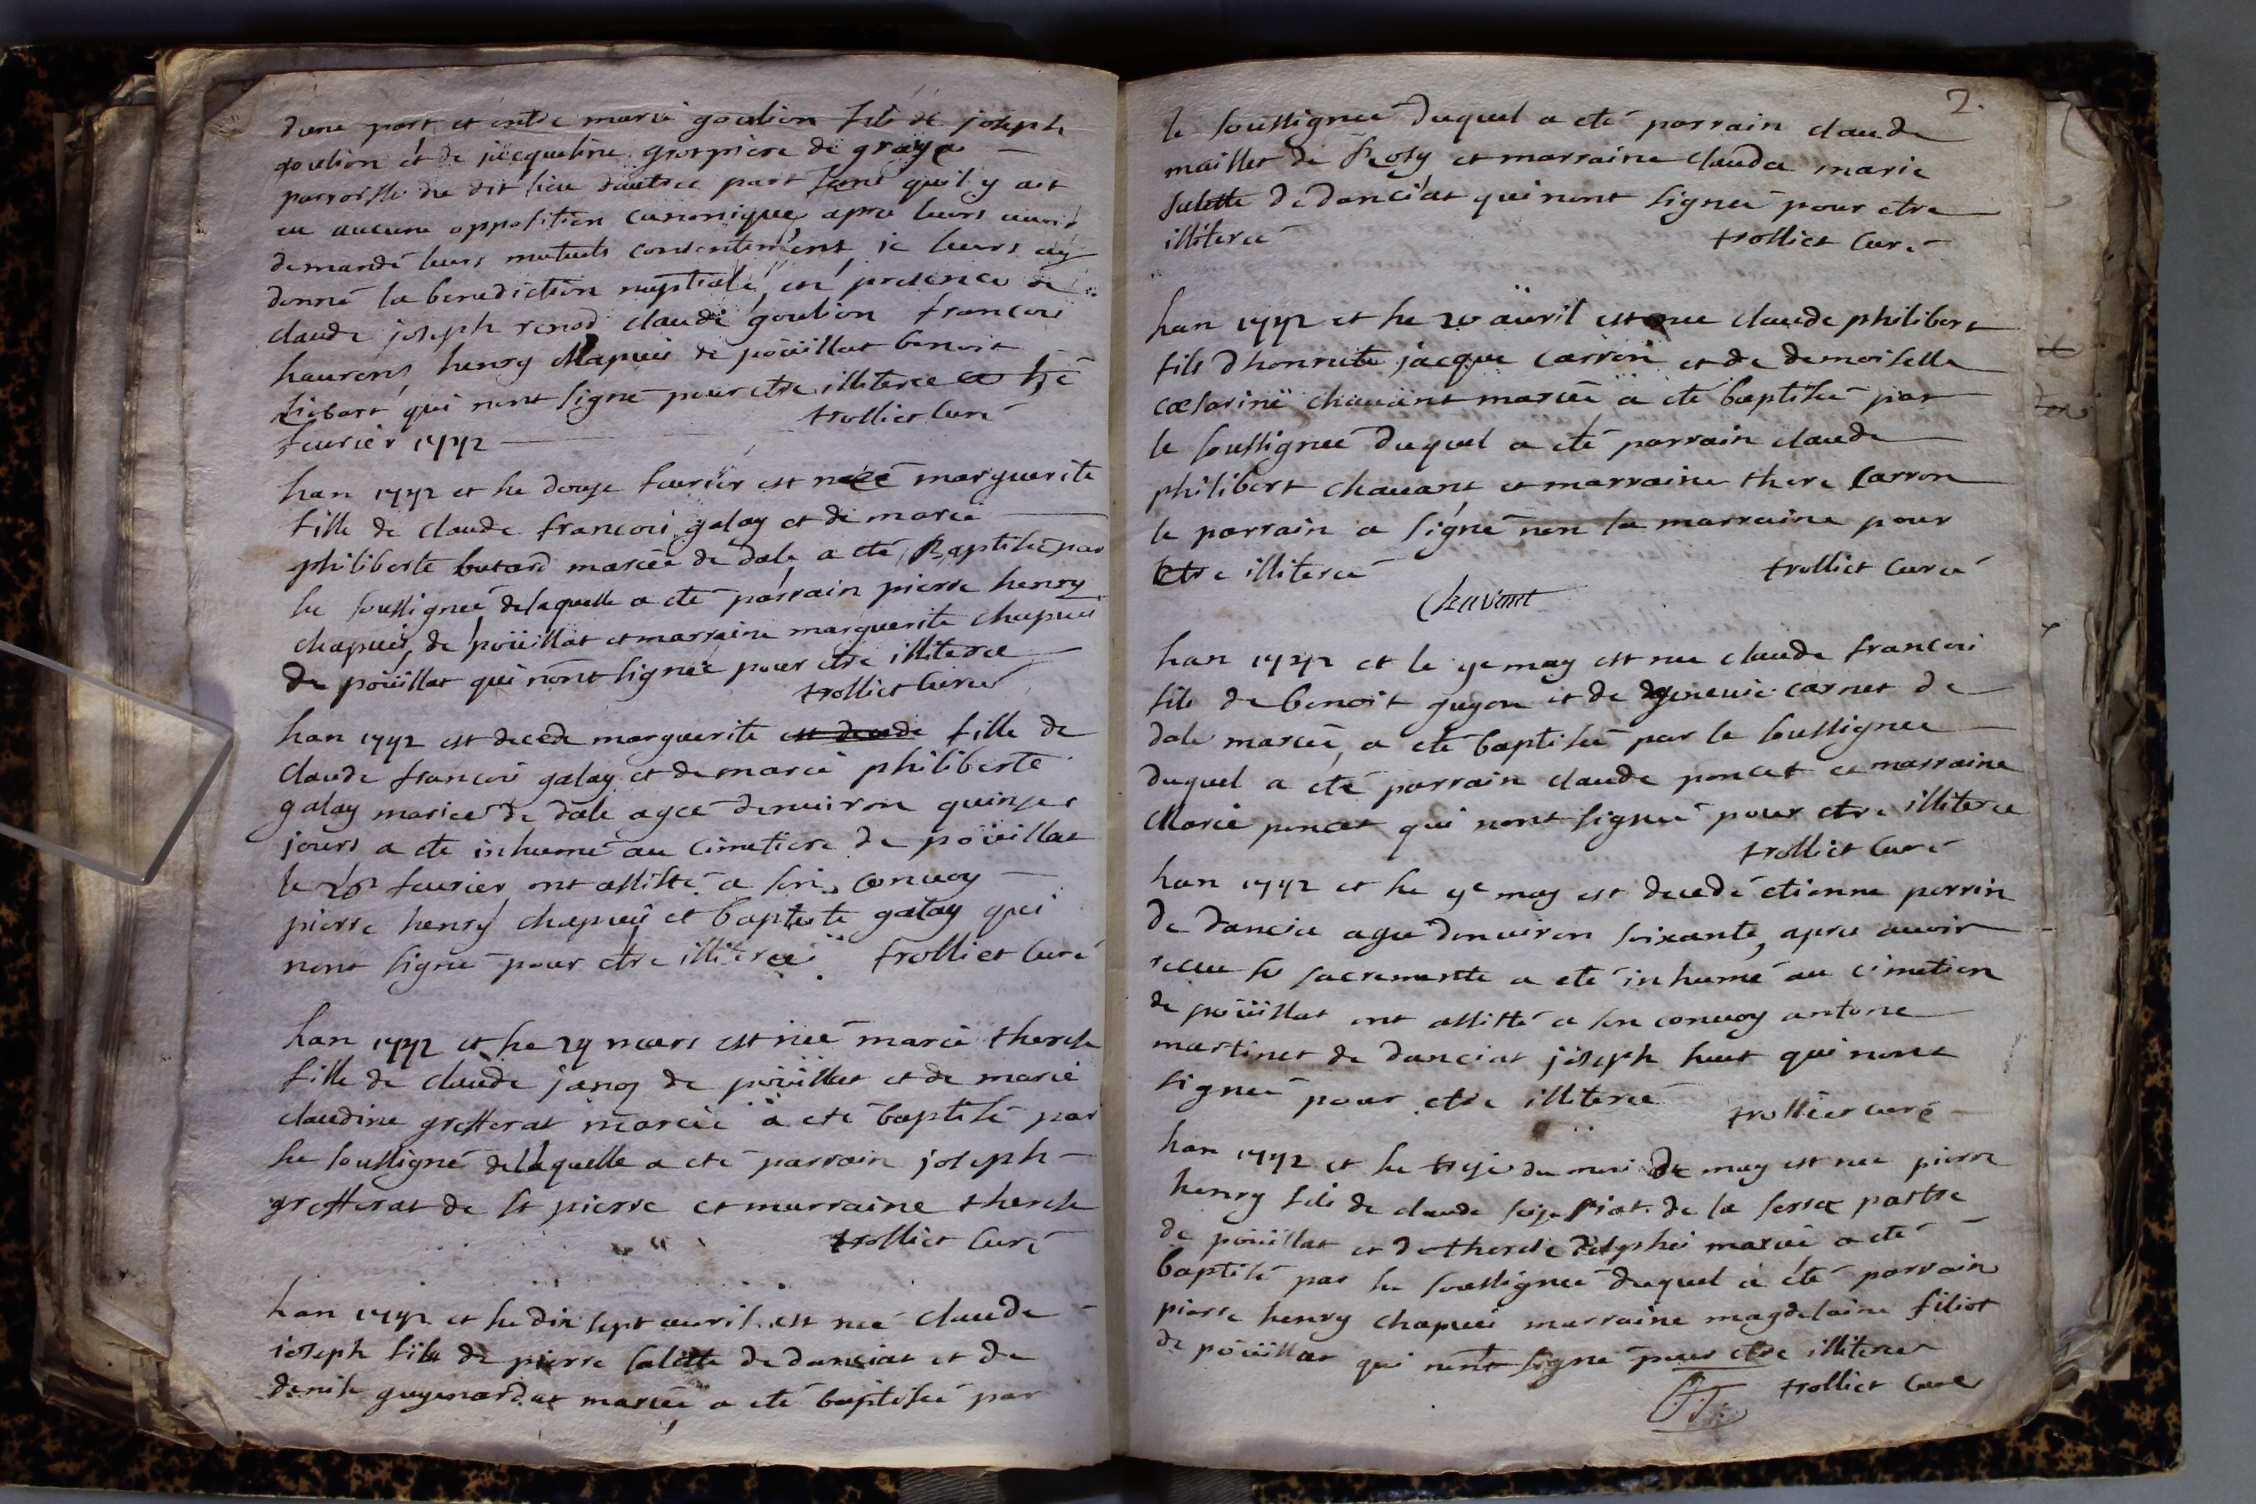 dune part et entre marie goulion file de joseph
goulion et de jacqueline grospiere de graye
parroisse du dit lieu dautre part sans quil y ait
eu aucune opposition canonique apres leurs avoir
demandé leurs mutuels consentement je leurs ay
donné la benediction nuptiale en presence de
claude joseph renod claude goulion francois
henry Chapuis de poüillat benoit
qui nont signé pour etre illiteree
trolliet curé
feurier 1772
han 1772 et he douze feurier est neé marguerite
fille de claude francois galay et de marie
philiberte butard mariée de dale a eté Baptisée par
he soussigneé delaquelle a eté parrain pierre henry
chapuis de poüillat et marraine marguerite chapuis
de poüillat qui nont signée pour etre illiteree
trolliet curé
han 1772 est decede marguerite est decede fille de
claude francois galay et de marie philiberte
galay mariee de dale agee denuiron quinze
jours a ete inhumé au cimetiere de poüillat
le feurier ont assisté a son conuoy
pierre henry chapuis et baptiste galay qui
nont signé pour etre illiteree trolliet curé
han 1772 et he 29 mars est neé marie therese
fille de claude janoy de poüillat et de marie
claudine grefferat mariée a eté baptisé par
he soussigné delaquelle a eté parrain joseph
grefferat de st pierre et marraine therese
trolliet curé
han 1772 et he dix sept auril est neé claude
joseph fils de pierre salette de danciat et de
denise guyenardat mariée a eté baptiseé par
2.
le soussigneé duquel a eté parrain claude
maillet de Rosy et marraine clauda marie
salette de danciat qui nont signeé pour etre
illitereé trolliet curé
han 1772 et he 20 auril est nee claude philibert
fils dhonnete jacque carron et de demoiselle
cæsarine chauant marieé a eté baptiseé par
le soussigneé duquel a eté parrain claude
philibert chauant et marraine there Carron
le parrain a signé non la marraine pour
etre illitereé trolliet cureé
Chavant
han 1772 et le 9e may est nee claude francois
fils de benoit guyon et de geneuie carnet de
dale marieé a eté baptiseé par le soussignee
duquel a eté parrain claude poncet et marraine
Marie poncet qui nont signeé pour etre illiteree
trolliet curé
han 1772 et he 9e may est decedé etienne perrin
de dancia agee denuiron soixante, apres auoir
receu les sacremente a eté inhumé au cimetiere
de poüillat ont assisté a son conuoy antone
martinet de danciat joseph huet qui nont
signeé pour etre illitereé trolliet curé
han 1772 et he du moi de may est nee pierre
henry fils de claude de la serra partre
de poüillat et de therese marieé a eté
baptisé par he soussigneé duquel a été parrain
pierre henry chapuis marraine magdelaine filiot
de poüillat qui nont signé pour etre illiteree
trolliet curé